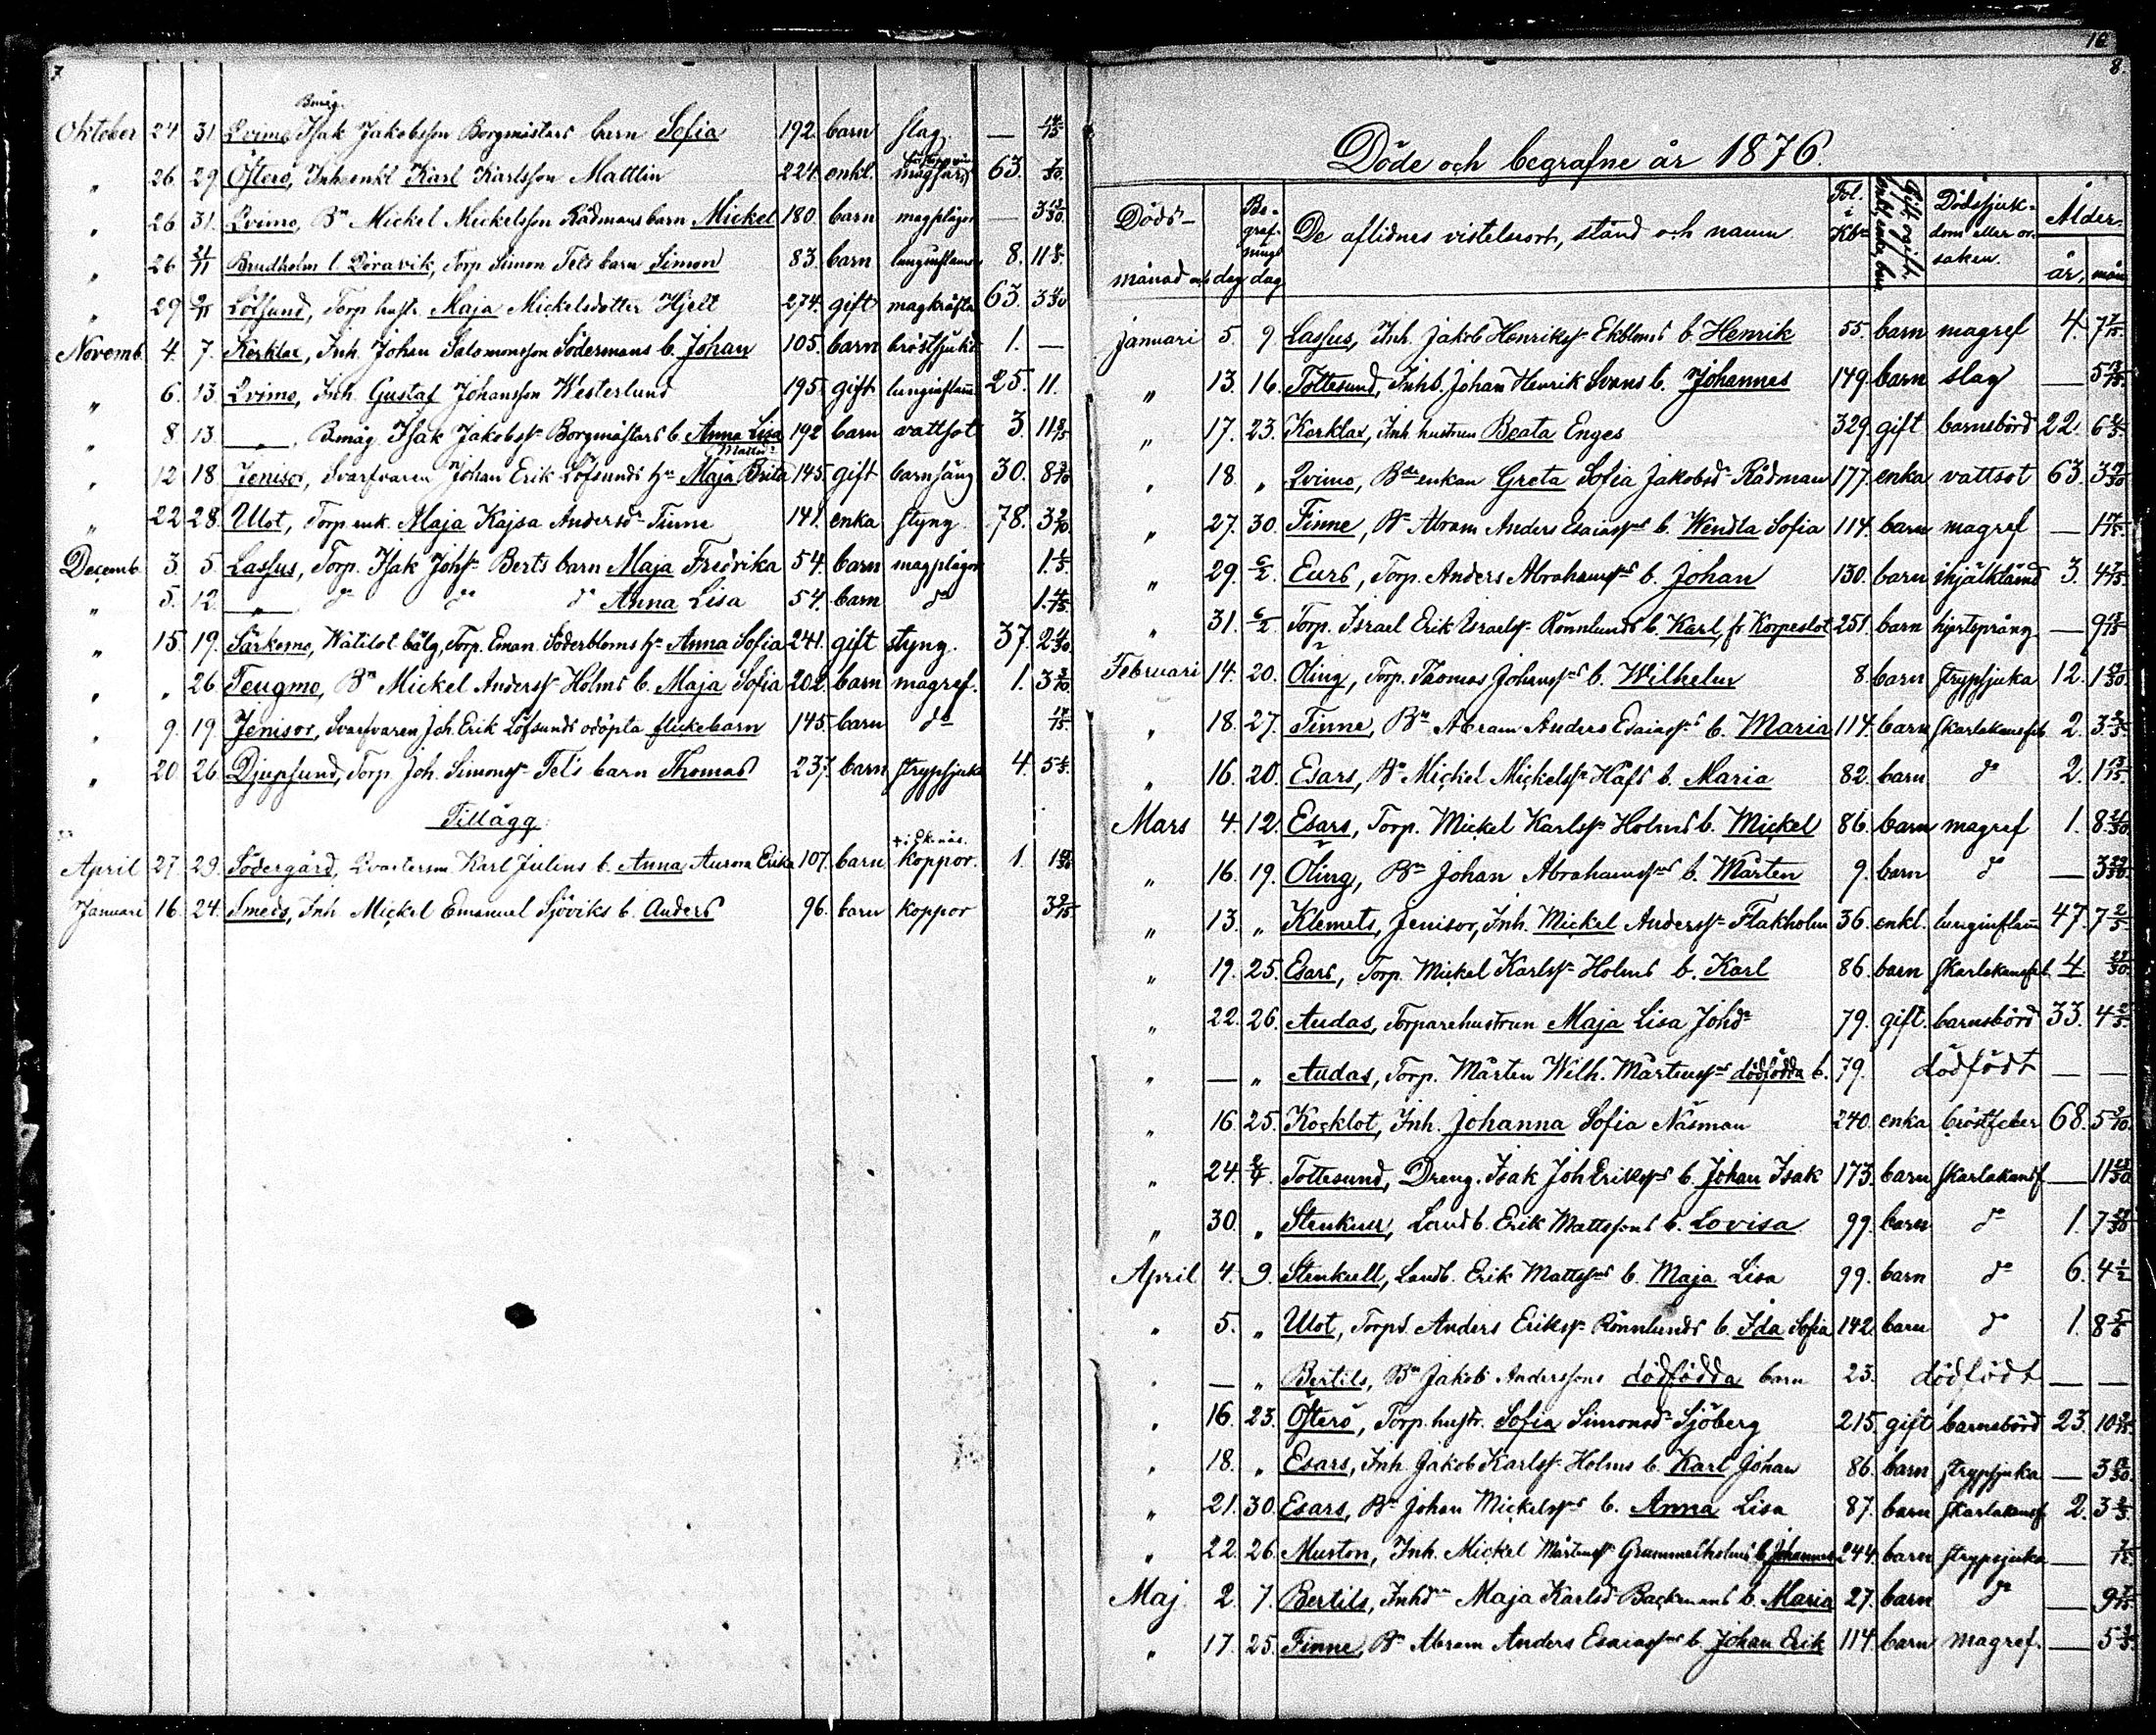 7
Bmåg.
Oktober 24 31. Qvimo, Isak Jakobsson Borgmästars barn Sofia 192. barn slag. — 14/15
„ 26. 29 Österö, Inh. enkl. Karl Karlsson Mattlin 224. enkl. 63. 1/30.
„ 26. 31. Qvimo, Bn Mickel Mickelsson Rådmans barn Mickel 180. barn magplågor — 3 13/30
„ 26 21/11 Brudholm l. Döravik, Torp. Simon Tels barn Simon 83. barn lunginflamm. 8. 11
„ 29 2/11 Löfsund, Torp. hustr. Maja Mickelsdotter Hjelt 274. gift magkräfta 63. 3 4/30
Novemb. 4. 7. Kerklax, Inh. Johan Salomonsson Södermans b. Johan 105. barn bröstsjukd. 1. —
„ 6. 13 Qvimo, Inh. Gustaf Johansson Westerlund 195. gift lunginflam. 25. 11.
„ 8. 13. „ Bmåg. Isak Jakobss. Borgmästars b. Anna Lisa 192 barn vattsot 3. 11
„ 12 18. Jenisor, Svarfvaren Johan Erik Löfsunds hu Maja Brita 145. gift barnsäng 30. 8
„ 22 28. Ulot, Torp. enk. Maja Kajsa Andersdr Finne 141. enka styng 78. 3
Decemb. 3. 5. Lassus, Torp. Isak Johss. Berts barn Maja Fredrika 54. barn magplågor 1.
„ 5. 12. „ do do do Anna Lisa 54. barn do 1.
„ 15. 19. Särkemo, Torp. Eman. Söderbloms hu Anna Sofia 241. gift styng. 37. 2 4/30
„ „ 26 Teugmo, Bn Mickel Anderss. Holms b. Maja Sofia 202. barn magref. 1. 3
„ 9. 19. Jenisor, Svarfvaren Joh. Erik Löfsunds odöpta flickebarn 145. barn do 17/15
„ 20. 26. Djupsund, Torp. Joh. Simonss. Tels barn Thomas 237. barn strypsjuka 4. 5
Tillägg:
April 27. 29. Södergård, Karl Julius b. Anna Aurora Erika 107. barn koppor. 1. 1
Januari 16. 24. Smeds, Inh. Mickel Emanuel Sjöviks b. Anders 96. barn koppor 3
10
8.
Döde och begrafne år 1876.
Döds- månad och dag
Begrafnings dag
De aflidnes vistelseort, stånd och namn
Fol. i Kbn
Dödssjukdom eller orsaken.
Ålder. år, mån
Januari 5. 9. Lassus, Inh. Jakob Henrikss. Ekbloms b. Henrik 55. barn magref 4. 7
„ 13. 16. Tottesund, Inh. Johan Henrik Svens b. Johannes 149. barn slag — 5
„ 17. 23. Kerklax, Inh. hustrun Beata Enges 329. gift barnsbörd 22. 6
„ 18. „ Qvimo, Bdeenkan Greta Sofia Jakobsdr Rådman 177. enka vattsot 63. 3
„ 27. 30. Finne, Bn Abram Anders Esaiassons b. Wendla Sofia 114. barn magref — 1
„ 29. 6/2. Eurs, Torp. Anders Abrahamssons b. Johan 130. barn ihjälklämd 3. 4
„ 31. 6/2. Torp. Israel Erik Israelss. Rönnlunds b. Karl, fr. Korpeslot 251. barn hjertsprång — 9
Februari 14. 20. Öling, Torp. Thomas Johanssons b. Wilhelm 8. barn strypsjuka 12. 1
„ 18. 27. Finne, Bn Abram Anders Esaiass. b. Maria 114. barn skarlakansfeb. 2. 3
„ 16. 20. Esars, Bn Mickel Mickelss. Häfs b. Maria 82. barn do 2. 1
Mars 4. 12. Esars, Torp. Mickel Karlss. Holms b. Mickel 86. barn magref 1. 8
„ 16. 19. Öling, Bn Johan Abrahamssons b. Mårten 9. barn do — 3
„ 13. „ Klemets, Jenisor, Inh. Mickel Anderss. Flakholm 36. enkl. lunginflam. 47. 7 2/5
„ 19. 25. Esars, Torp. Mickel Karlss. Holms b. Karl 86. barn skarlakansfeb. 4 29/30
„ 22. 26. Audas, Torparehustrun Maja Lisa Johdr 79. gift. barnsbörd 33. 4
„ — „ Audas, Torp. Mårten Wilh. Mårtenssons dödfödda b. 79. dödfödt — —
„ 16. 25. Kocklot, Inh. Johanna Sofia Näsman 240. enka bröstfeber 68. 5
„ 24. 2/4. Tottesund, Dreng. Isak Joh Erikssons b. Johan Isak 173. barn skarlakansf. — 11
„ 30. „ Stenkull, Landb. Erik Mattssons b. Lovisa 99. barn do 1. 7
April 4. 9. Stenkull, Landb. Erik Mattssons b. Maja Lisa 99. barn do 6. 4 1/2
„ 5. „ Ulot, Torp. Anders Erikss. Rönnlunds b. Ida Sofia 142. barn do 1. 8
„ — „ Bertils, Bn Jakob Anderssons dödfödda barn 23. dödfödt — —
„ 16. 23. Österö, Torp. hustr. Sofia Simonsdr Sjöberg 215. gift barnsbörd 23. 10
„ 18. „ Esars, Inh. Jakob Karlss. Holms b. Karl Johan 86. barn strypsjuka — 3
„ 21. 30. Esars, Bn Johan Mickelssons b. Anna Lisa 87. barn skarlakansf. 2. 3
„ 22. 26. Murton, Inh. Mickel Mårtenss. Grammelholms b. Johannes 244. barn strypsjuka —
Maj. 2. 7. Bertils, Inhdr Maja Karlsdr Backmans b. Maria 27. barn do — 9
„ 17. 25. Finne, Bn Abram Anders Esaiassons b. Johan Erik 114. barn magref. — 5